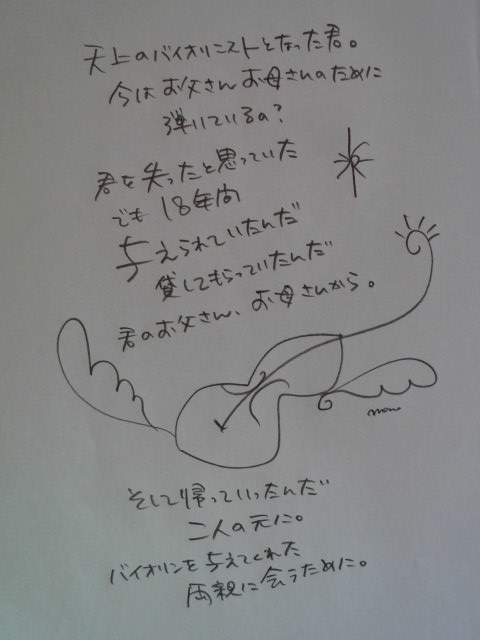 天上のバイオリニストとなった君。
今はお父さんお母さんのために
弾いているの?
君を失ったと思っていた
でも18年間
与えられていたんだ
貸してもらっていたんだ
君のお父さん、お母さんから。
そして帰っていったんだ
二人の元に。
バイオリンを与えてくれた
両親に会うために。